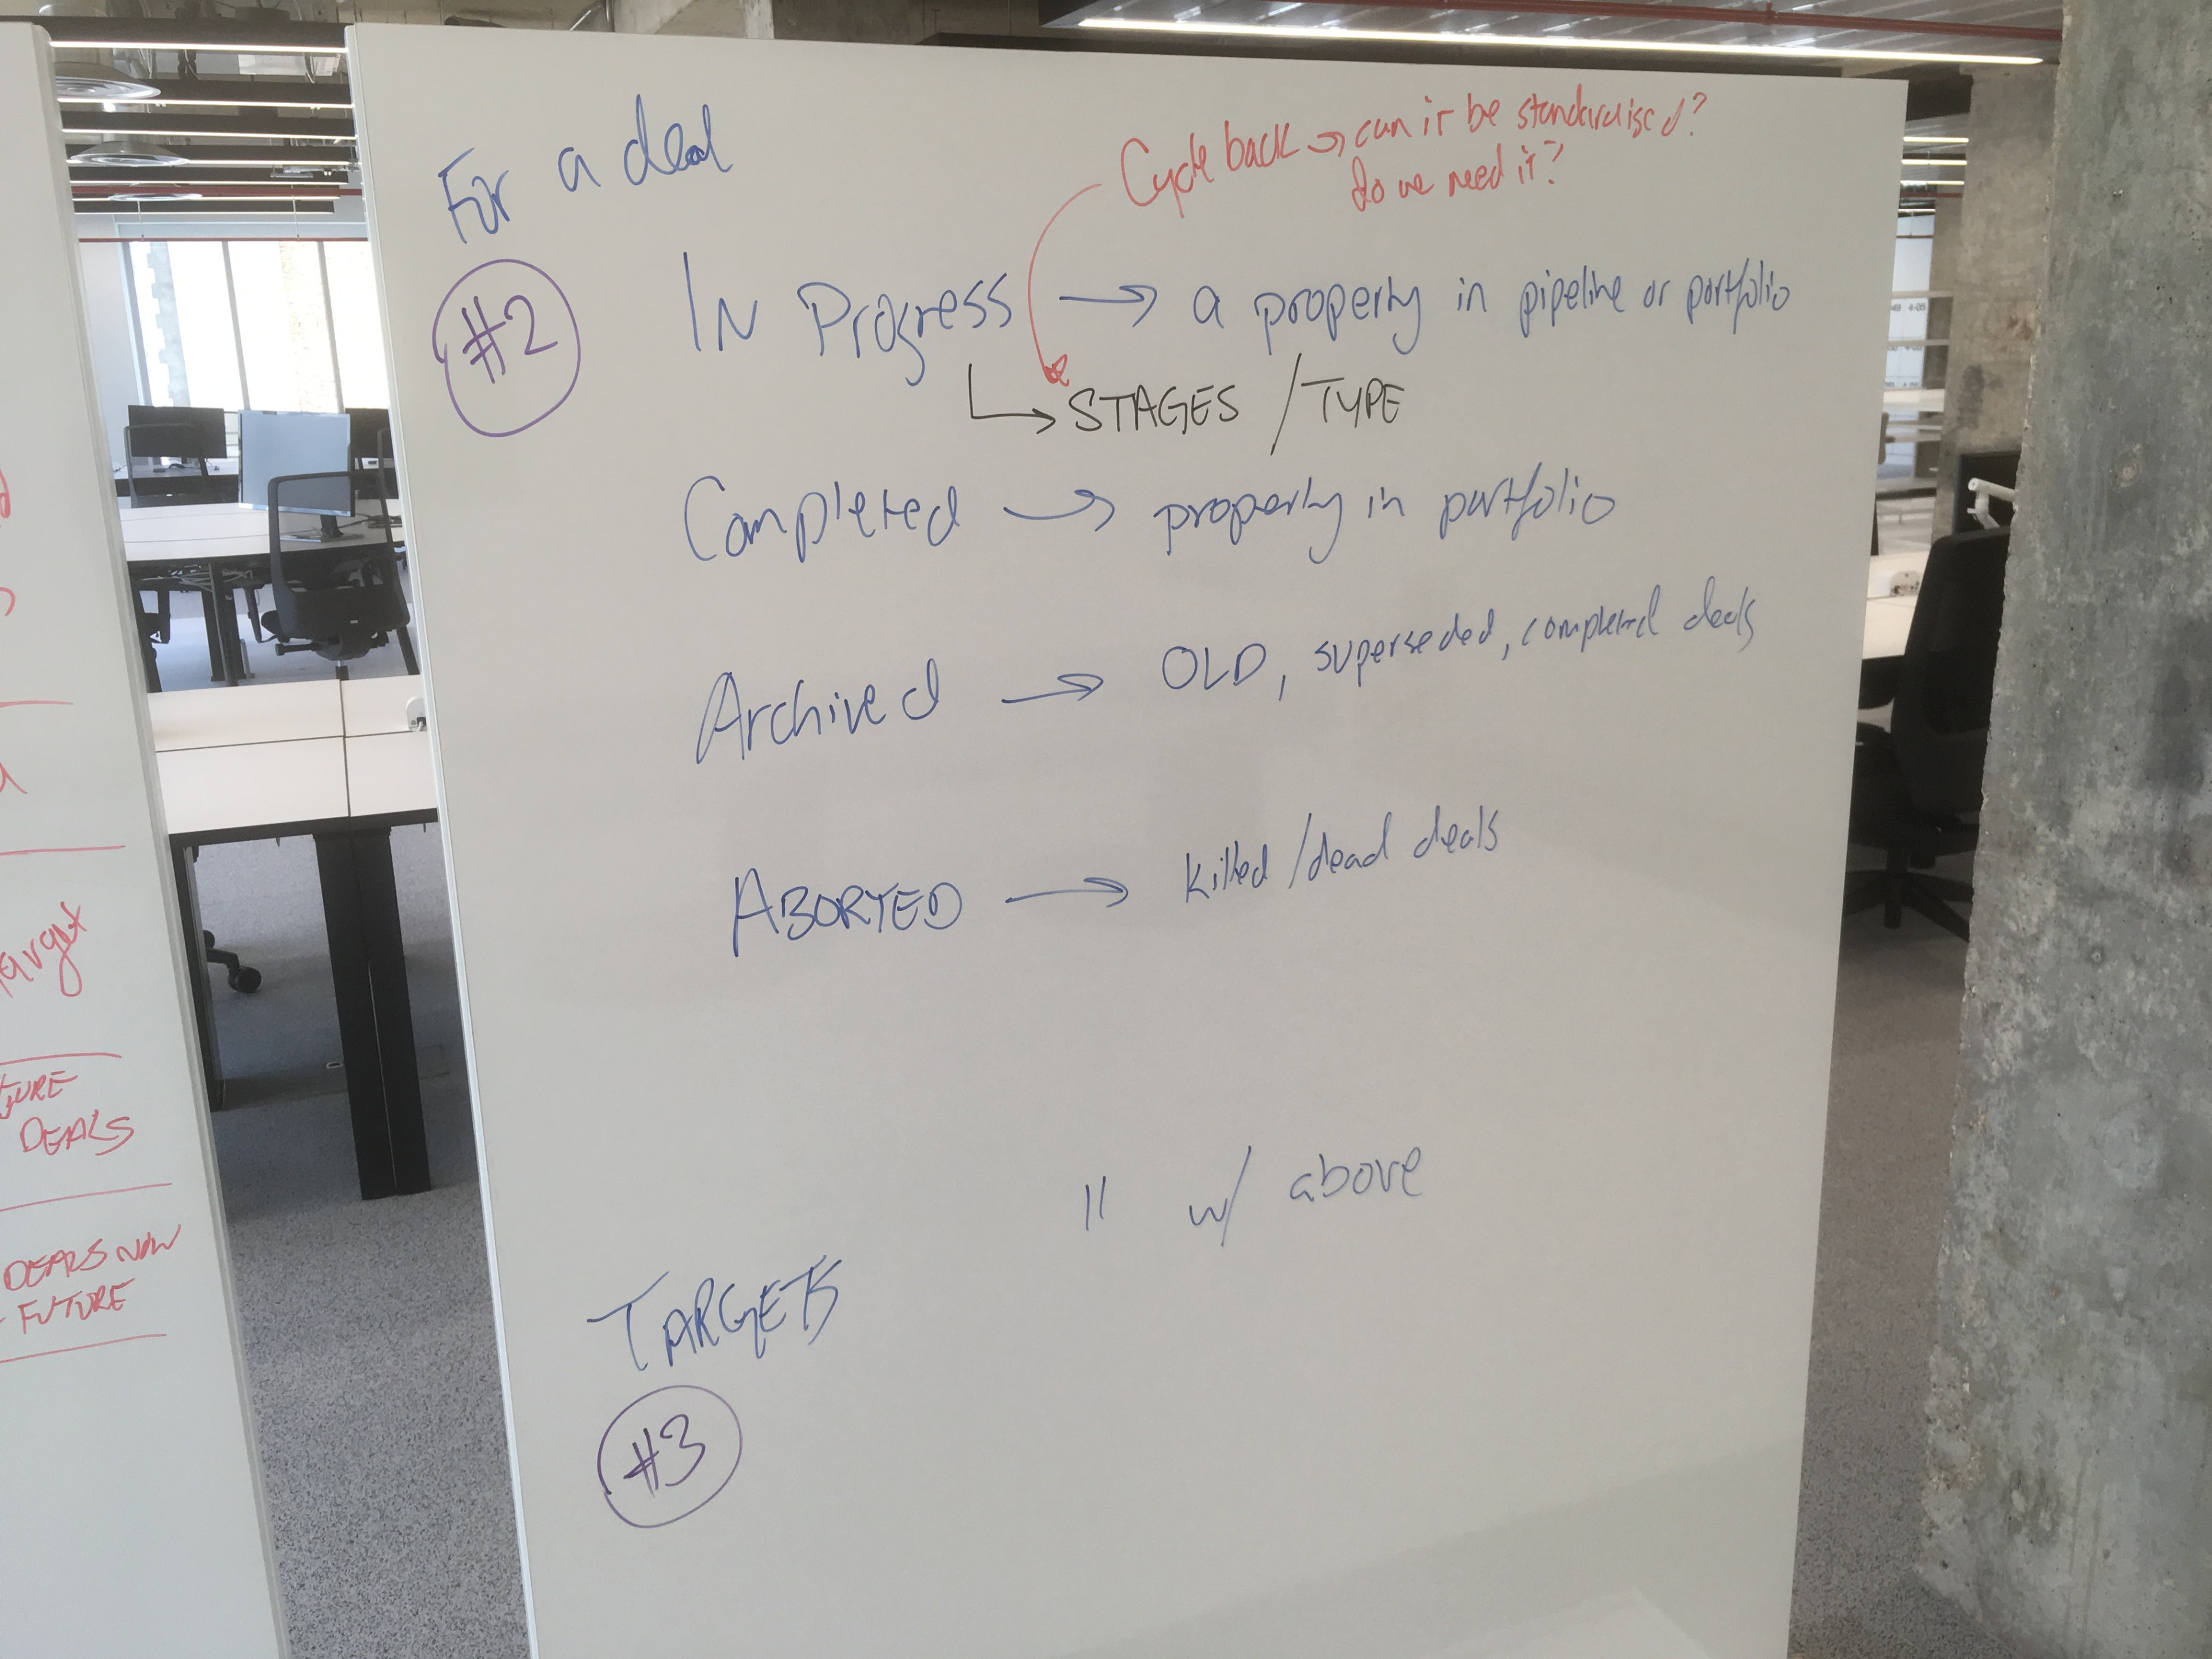 For a deal
Cycle back → can it be standardised?
do we need it?
#2
In Progress → a property in pipeline or portfolio
↳ STAGES / TYPE
Completed → property in portfolio
Archived → OLD, superseded, completed deals
ABORTED → killed/dead deals
TARGETS
#3
" w/ above
DEALS
DEALS NOW
- FUTURE